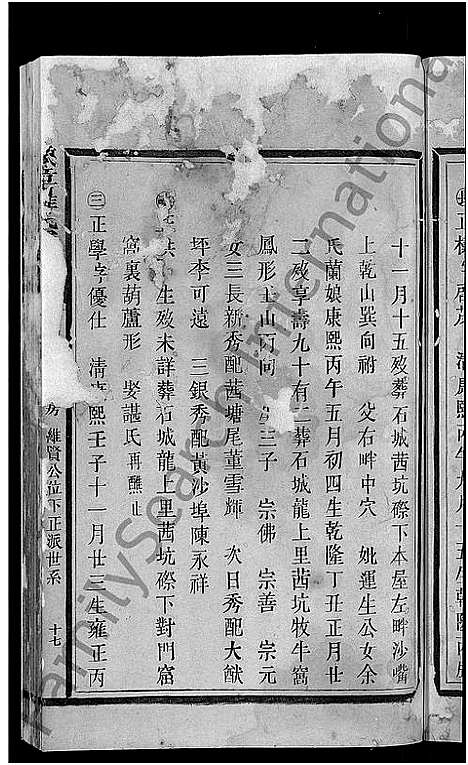 十一月十五歿葬石城茜坑磜下本屋左畔沙嘴
上乾山巽向祔 父右畔中穴 妣運生公女余
氏蘭娘康熙丙午五月初四生乾隆丁丑正月廿
二歿享壽九十有二葬石城龍上里茜坑牧牛窩
鳳形 山丙向 生三子 宗佛 宗善 宗元
女三長新秀配茜塘尾董雪輝 次日秀配大猷
坪李可遠 三銀秀配黃沙埠陳永祥
生歿未詳葬石城龍上里茜坑磜下對門窩
窩裏葫蘆形 娶諶氏再醮止
三正學字優仕 清康熙壬子十一月廿三生雍正丙
房 維賢公位下正派世系 十七
FamilySearch International